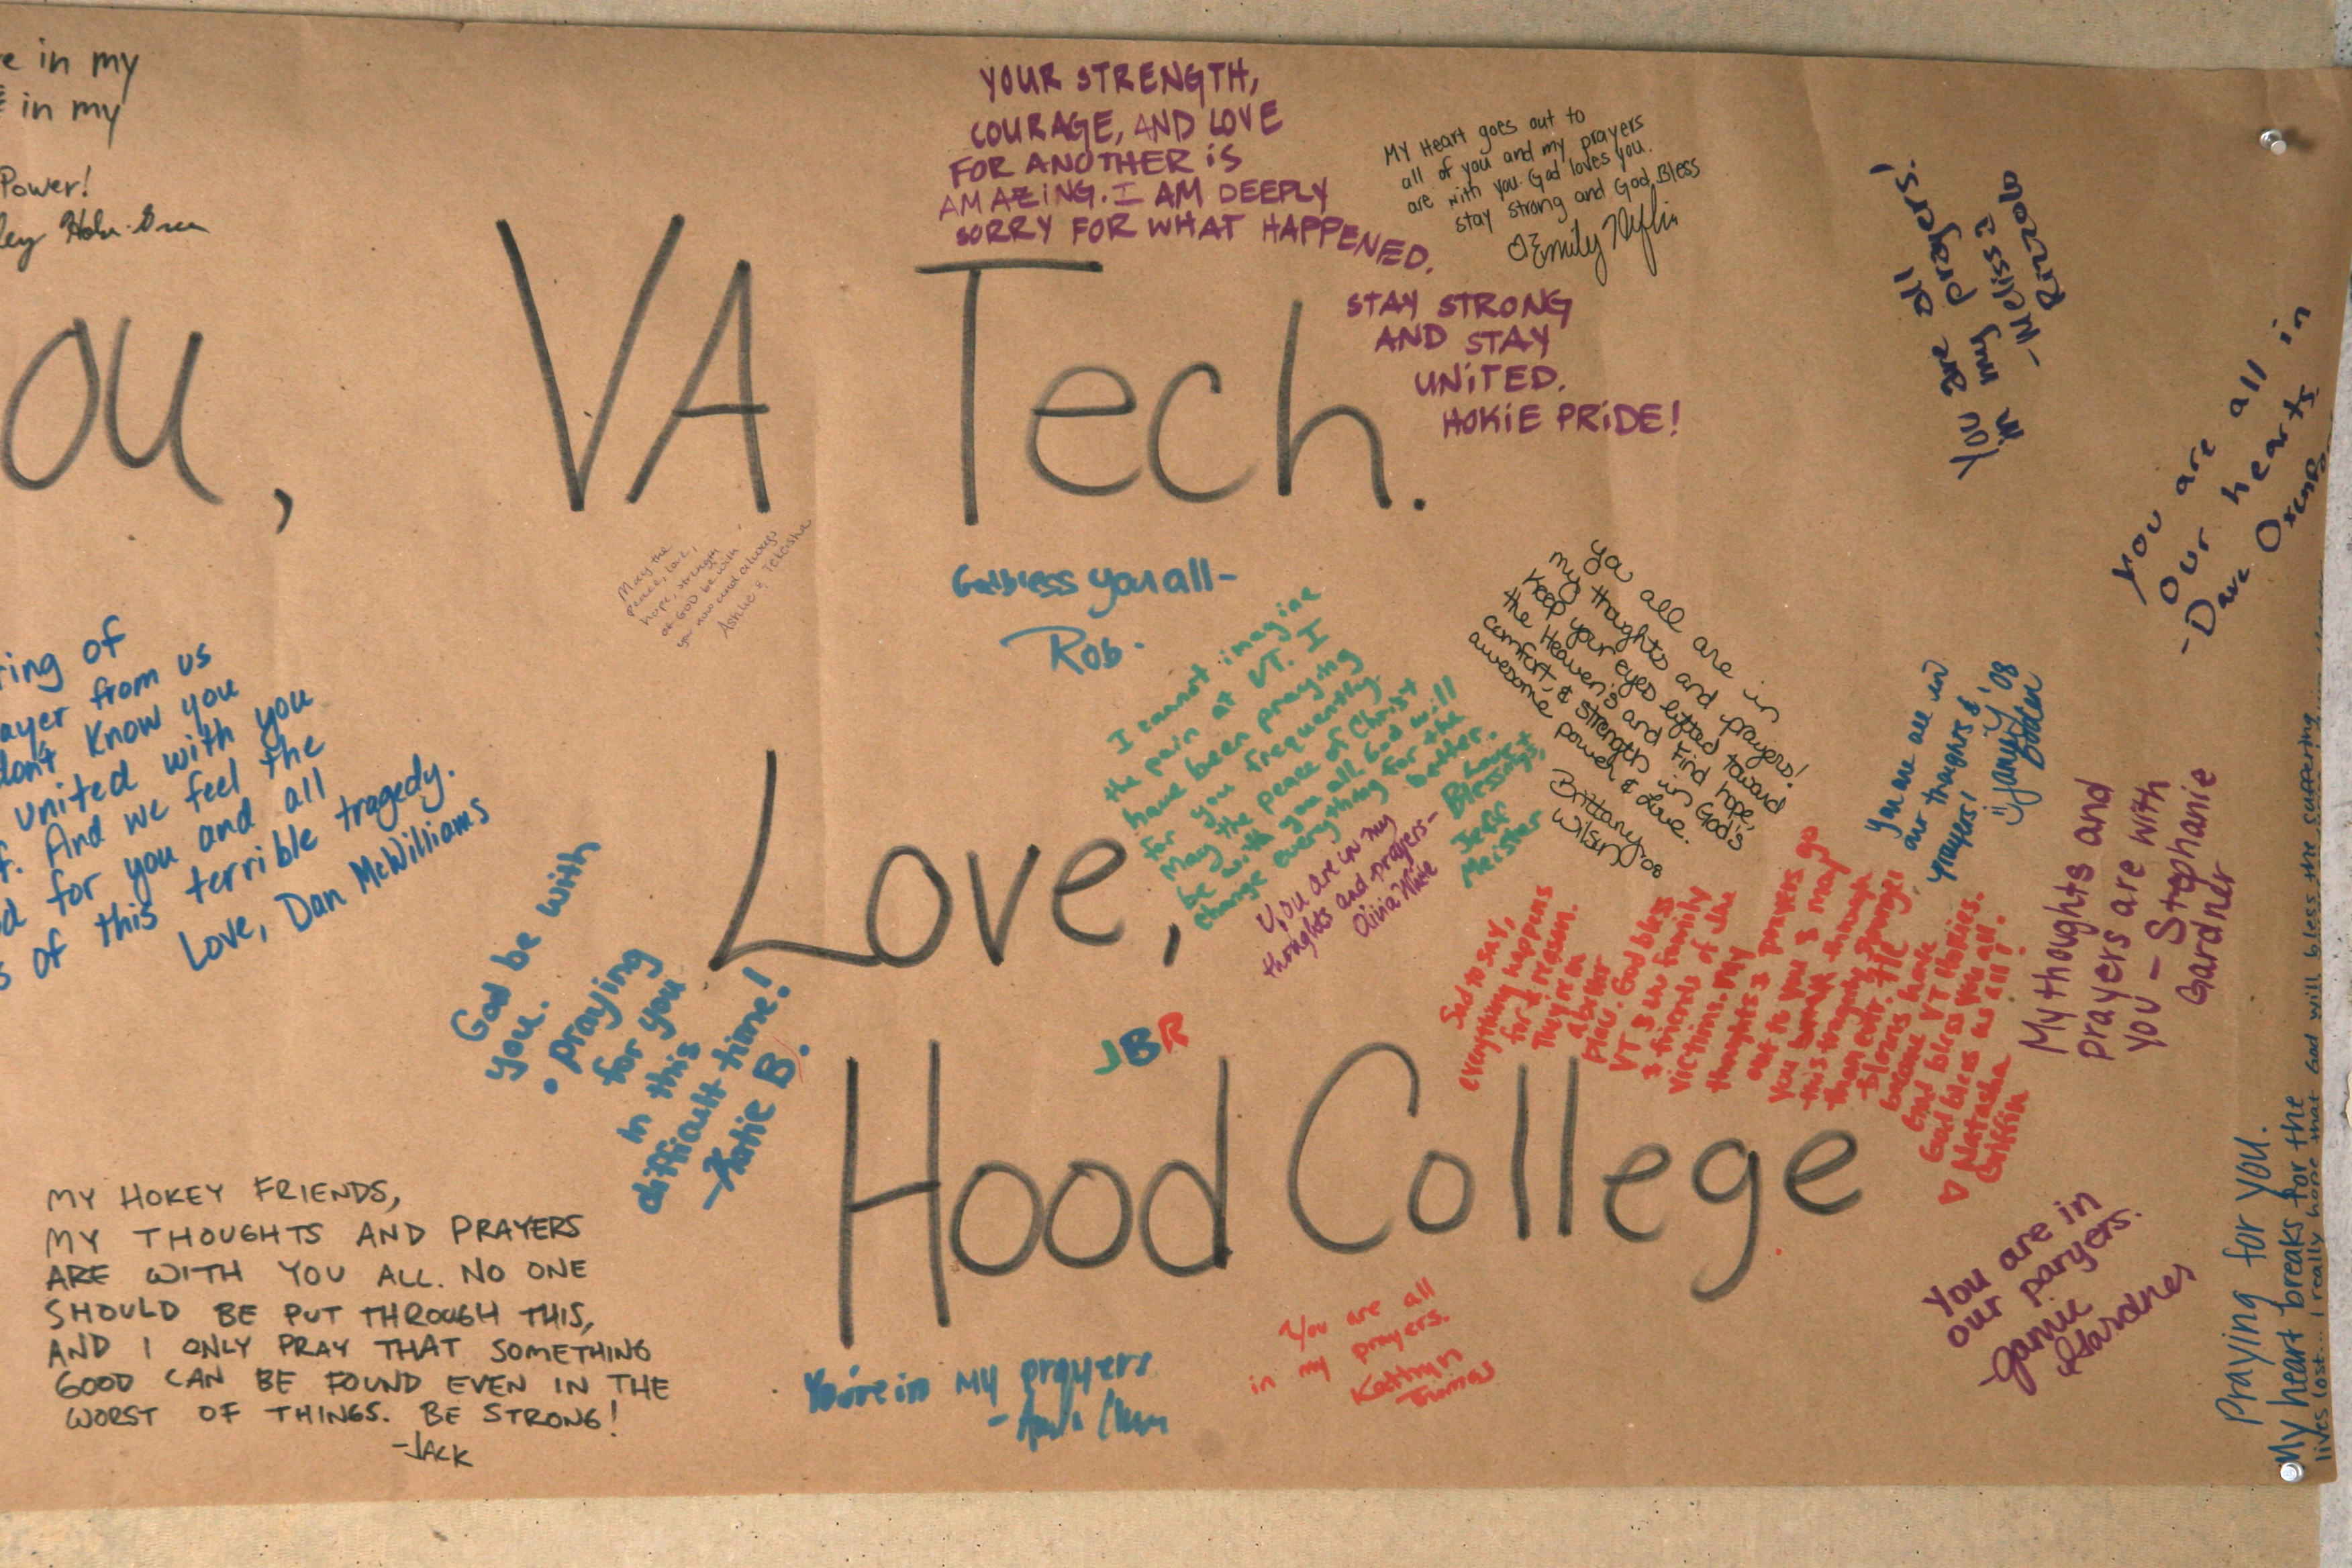 e in my
in my
Power!
ou, VA Tech.
Love,
Hood College
YOUR STRENGTH,
COURAGE, AND LOVE
FOR ANOTHER IS
AMAZING. I AM DEEPLY
SORRY FOR WHAT HAPPENED.
STAY STRONG
AND STAY
UNITED.
HOKIE PRIDE!
MY Heart goes out to
all of you and my prayers
are with you. God loves you.
stay strong and God Bless
Emily
You are all
in my prayers!
- Melissa
Rizzolo
You are all in
our hearts
- Dave
May the
peace, love,
hope, strength
of GOD be with
you now and always
God bless you all -
Rob.
I cannot imagine
the pain at VT. I
have been praying
for you frequently.
May the peace of Christ
be with you all. God will
change everything for the
better.
Love &
Blessings,
Jeff
Meister
You are in my
thoughts and prayers -
Olivia White
Ya all are in
my thoughts and prayers!
Keep your eyes lifted toward
the Heaven's and Find hope,
comfort, & strength in God's
awesome power & Love.
Brittany
Wilson '08
You are all in
our thoughts &
prayers!
'08
My thoughts and
prayers are with
you - Stephanie
Gardner
Sad to say,
everything happens
for a reason.
They're in
a better
place. God bless
VT & the family
& friends of the
victims. My
thoughts & prayers go
out to you & may
you through
this tragedy stronger
than ever. The
have
became VT Hokies.
God bless you all.
God bless us all!
♡ Natasha
Griffin
ring of
ayer from us
don't know you
united with you
f. And we feel the
d for you and all
s of this terrible tragedy.
Love, Dan McWilliams
God be with
you.
• Praying
for you
in this
difficult time!
- Katie B.
JBR
MY HOKEY FRIENDS,
MY THOUGHTS AND PRAYERS
ARE WITH YOU ALL. NO ONE
SHOULD BE PUT THROUGH THIS,
AND I ONLY PRAY THAT SOMETHING
GOOD CAN BE FOUND EVEN IN THE
WORST OF THINGS. BE STRONG!
-JACK
You're in my prayers
You are all
in my prayers.
Kathryn
Thomas
You are in
our paryers.
Jamie
Gardner
Praying for you.
My heart breaks for the
lives lost... I really hope that God will bless the suffering